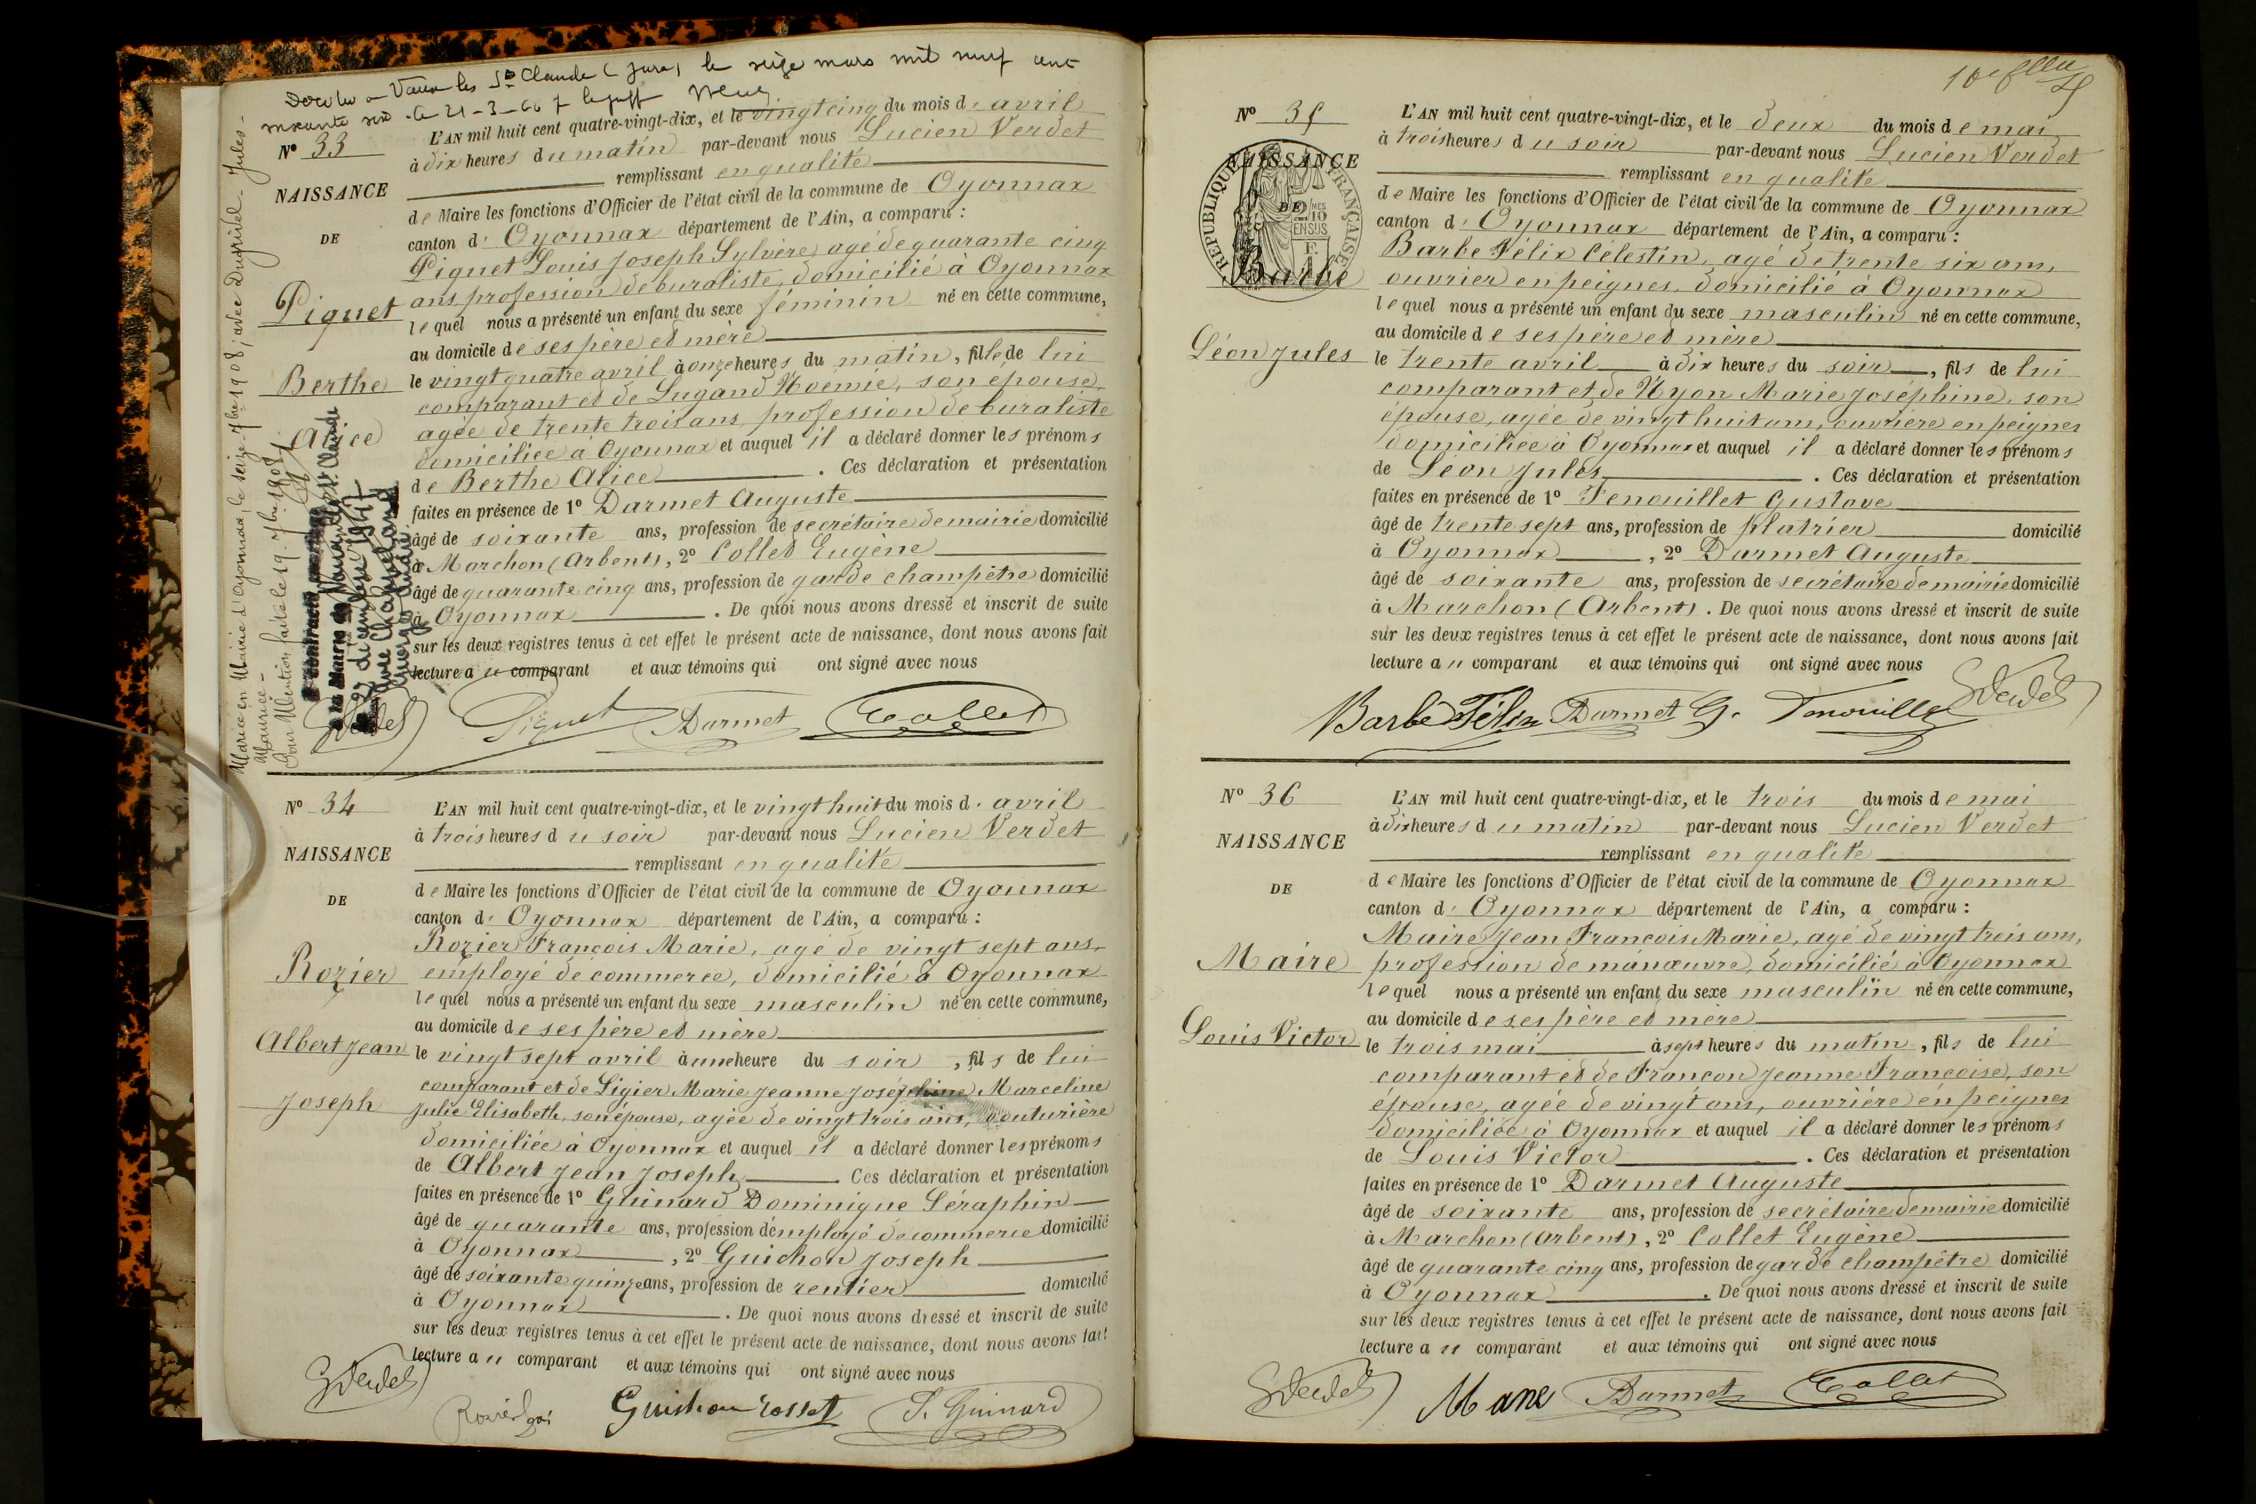 Décédée à Vaux les St Claude (Jura) le seize mars mil neuf cent
soixante six. Le 21-3-66
Nº 33
NAISSANCE
DE
Piquet
Berthe
Alice
Mariée en Mairie d'Oyonnax, le seize 7bre 1908, avec Dugrivel Jules-
Maurice -
Pour Mention faite le 19. 7bre 1908.
a contracté mariage
à la Mairie de Vaux les St Claude
le 27 décembre 1947
avec Chappeland
Georges
L'AN mil huit cent quatre-vingt-dix, et le vingt cinq du mois d' avril
à dix heures du matin par-devant nous Lucien Verdet
remplissant en qualité
de Maire les fonctions d'Officier de l'état civil de la commune de Oyonnax
canton d' Oyonnax département de l'Ain, a comparu :
Piquet Louis Joseph Sylvère, agé de quarante cinq
ans, profession de buraliste, domicilié à Oyonnax
lequel nous a présenté un enfant du sexe féminin né en cette commune,
au domicile de ses père et mère
le vingt quatre avril à onze heures du matin, fille de lui
comparant et de Lugand Noémie, son épouse
agée de trente trois ans, profession de buraliste
domiciliée à Oyonnax et auquel il a déclaré donner les prénoms
de Berthe Alice . Ces déclaration et présentation
faites en présence de 1º Darmet Auguste
âgé de soixante ans, profession de secrétaire de mairie domicilié
à Marchon (Arbent), 2º Collet Eugène
âgé de quarante cinq ans, profession de garde champêtre domicilié
à Oyonnax . De quoi nous avons dressé et inscrit de suite
sur les deux registres tenus à cet effet le présent acte de naissance, dont nous avons fait
lecture au comparant et aux témoins qui ont signé avec nous
Verdet Piquet Darmet Collet
Nº 34
NAISSANCE
DE
Rozier
Albert Jean
Joseph
L'AN mil huit cent quatre-vingt-dix, et le vingt huit du mois d' avril
à trois heures du soir par-devant nous Lucien Verdet
remplissant en qualité
de Maire les fonctions d'Officier de l'état civil de la commune de Oyonnax
canton d' Oyonnax département de l'Ain, a comparu :
Rozier François Marie, agé de vingt sept ans,
employé de commerce, domicilié à Oyonnax
lequel nous a présenté un enfant du sexe masculin né en cette commune,
au domicile de ses père et mère
le vingt sept avril à une heure du soir , fils de lui
comparant et de Ligier Marie Jeanne Joséphine Marceline
Julie Elisabeth, son épouse, agée de vingt trois ans, couturière
domiciliée à Oyonnax et auquel il a déclaré donner les prénoms
de Albert Jean Joseph . Ces déclaration et présentation
faites en présence de 1º Guinard Dominique Séraphin
âgé de quarante ans, profession d'employé de commerce domicilié
à Oyonnax , 2º Guichon Joseph
âgé de soixante quinze ans, profession de rentier domicilié
à Oyonnax . De quoi nous avons dressé et inscrit de suite
sur les deux registres tenus à cet effet le présent acte de naissance, dont nous avons fait
lecture au comparant et aux témoins qui ont signé avec nous
Verdet
Rozier Guichon S. Guinard
Nº 35
NAISSANCE
DE
RÉPUBLIQUE FRANÇAISE
2/10 EN SUS
Barbe
Léon Jules
L'AN mil huit cent quatre-vingt-dix, et le deux du mois de mai
à trois heures du soir par-devant nous Lucien Verdet
remplissant en qualité
de Maire les fonctions d'Officier de l'état civil de la commune de Oyonnax
canton d' Oyonnax département de l'Ain, a comparu :
Barbe Félix Célestin, agé de trente six ans,
ouvrier en peignes, domicilié à Oyonnax
lequel nous a présenté un enfant du sexe masculin né en cette commune,
au domicile de ses père et mère
le trente avril à dix heures du soir , fils de lui
comparant et de Nyon Marie Joséphine, son
épouse, agée de vingt huit ans, ouvrière en peignes
domiciliée à Oyonnax et auquel il a déclaré donner les prénoms
de Léon Jules . Ces déclaration et présentation
faites en présence de 1º Fenouillet Gustave
âgé de trente sept ans, profession de platrier domicilié
à Oyonnax , 2º Darmet Auguste
âgé de soixante ans, profession de secrétaire de mairie domicilié
à Marchon (Arbent) . De quoi nous avons dressé et inscrit de suite
sur les deux registres tenus à cet effet le présent acte de naissance, dont nous avons fait
lecture au comparant et aux témoins qui ont signé avec nous
Barbe Félix Darmet G. Fenouillet Verdet
Nº 36
NAISSANCE
DE
Maire
Louis Victor
L'AN mil huit cent quatre-vingt-dix, et le trois du mois de mai
à dix heures du matin par-devant nous Lucien Verdet
remplissant en qualité
de Maire les fonctions d'Officier de l'état civil de la commune de Oyonnax
canton d' Oyonnax département de l'Ain, a comparu :
Maire Jean François Marie, agé de vingt trois ans,
profession de manœuvre, domicilié à Oyonnax
lequel nous a présenté un enfant du sexe masculin né en cette commune,
au domicile de ses père et mère
le trois mai à sept heures du matin, fils de lui
comparant et de Françon Jeanne Françoise, son
épouse, agée de vingt ans, ouvrière en peignes
domiciliée à Oyonnax et auquel il a déclaré donner les prénoms
de Louis Victor . Ces déclaration et présentation
faites en présence de 1º Darmet Auguste
âgé de soixante ans, profession de secrétaire de mairie domicilié
à Marchon (Arbent), 2º Collet Eugène
âgé de quarante cinq ans, profession de garde champêtre domicilié
à Oyonnax . De quoi nous avons dressé et inscrit de suite
sur les deux registres tenus à cet effet le présent acte de naissance, dont nous avons fait
lecture au comparant et aux témoins qui ont signé avec nous
Verdet Maire Darmet Collet